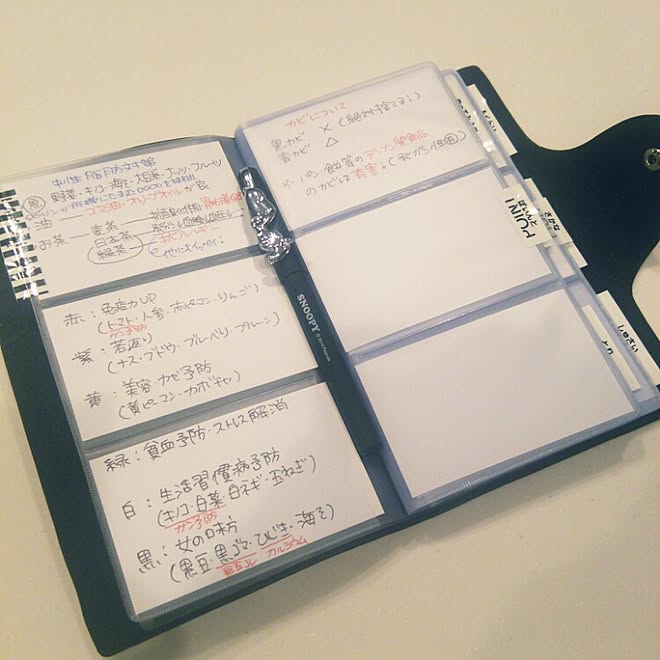 中性脂肪対策
野菜・キノコ・海そ・大豆・ナッツ・フルーツ
が良
油 — ゴマ油・オリーブオイルが良
お茶 — 麦茶
日本茶
緑茶
赤：免疫力UP
(トマト・人参・赤ピーマン・りんご)
ガン予防
紫：若返り
(ナス・ブドウ・ブルーベリ・プルーン)
黄：美容・カゼ予防
(黄ピーマン・カボチャ)
緑：貧血予防・ストレス解消
白：生活習慣病予防
(キノコ・白菜・白ネギ・玉ねぎ)
ガン予防
黒：女の味方
(黒豆・黒ゴマ・ひじき・海そ)
カルシウム
カビについて
黒カビ × (絶対捨てる!)
青カビ △
※パン・餅等のデンプン質食品
のカビは有害!
SNOOPY
ぽいんと
POINT
さかな
しゅさい
とり